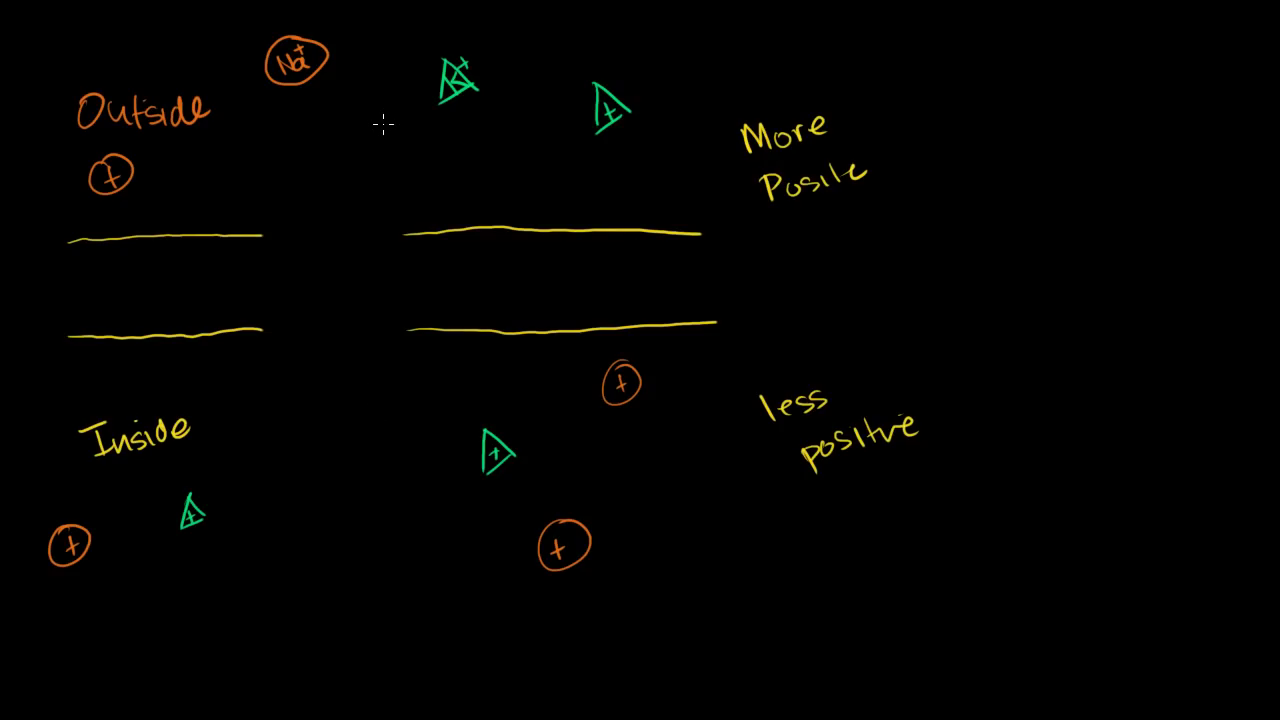 Na+
K+
+
Outside
More
Posite
+
+
less
positive
Inside
+
+
+
+